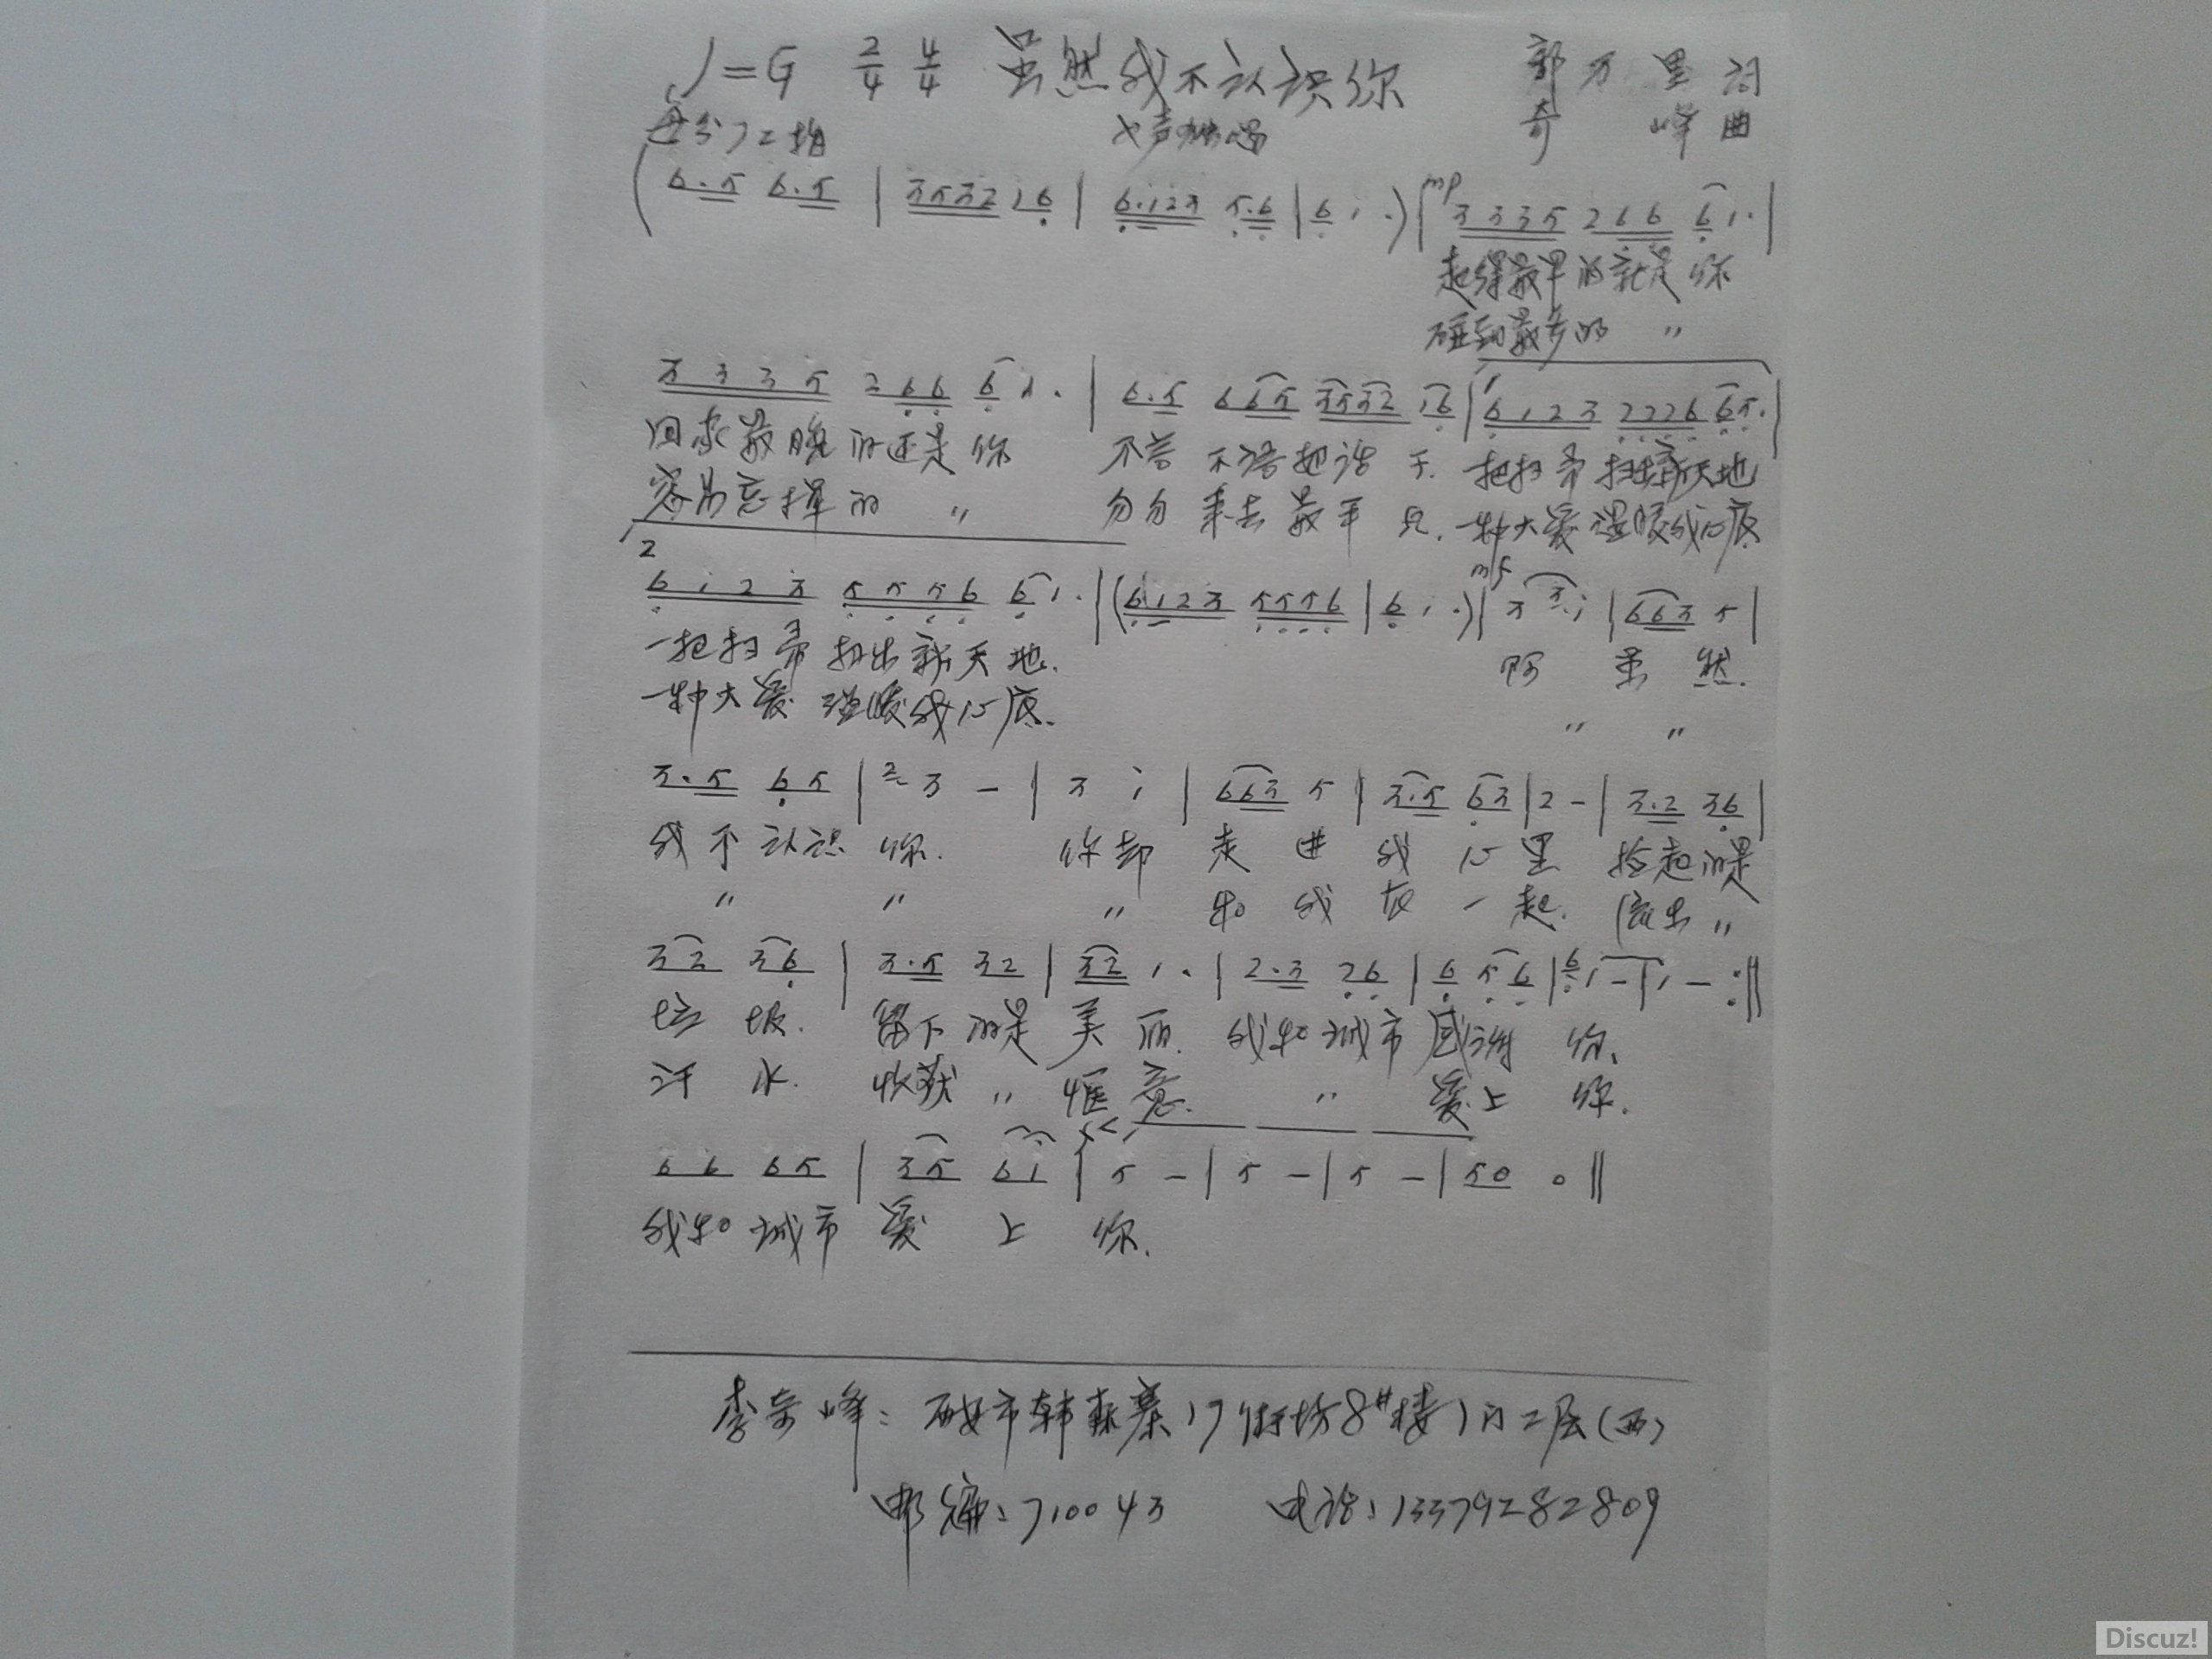 1=G 2/4 4/4 虽然我不认识你 郭万里词
每分72拍 女声独唱 奇峰曲
(6.5 6.5 | 3532 16 | 6.123 5.6 | 6 1 .) | mp 3335 266 6 1. |
起得最早的就是你
碰到最多的 〃
3335 266 6 1. | 6.5 665 3532 16 | 1 6123 2226 65. |
回家最晚的还是你 不言不语把活干. 一把扫帚扫出新天地
容易忘掉的 〃 匆匆来去最平凡. 一种大爱温暖我心底
2
6123 5556 6 1. | (6123 5556 | 6 1 .) | mf 3 3 1 | 663 5 |
一把扫帚扫出新天地. 啊 虽然.
一种大爱温暖我心底. 〃 〃
3.5 65 | 2 3 - | 3 1 | 663 5 | 3.5 63 | 2 - | 3.2 36 |
我不认识你. 你却走进我心里 捡起的是
〃 〃 〃 和我在一起. 流出〃
33 36 | 3.5 32 | 32 1. | 2.3 26 | 6 56 | 6 1 - | 1 - :||
垃圾. 留下的是美丽. 我和城市感谢你、
汗水. 收获〃惬意. 〃 爱上你.
66 65 | 35 61 | 5 - | 5 - | 5 - | 50 0 ||
我和城市爱上你.
李奇峰: 西安市韩森寨17街坊8#楼1门二层(西)
邮编: 710043 电话: 13379282809
Discuz!